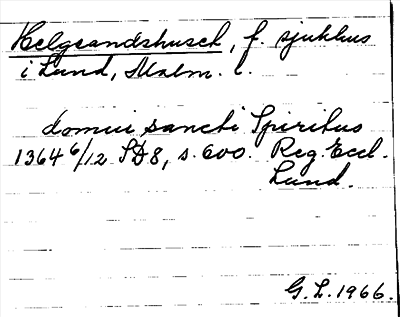 Helgeandshuset, f. sjukhus
i Lund, Malm. l.
domui sancti Spiritus
1364 6/12 SD8, s. 600. Reg. Eccl.
Lund.
G. L. 1966.